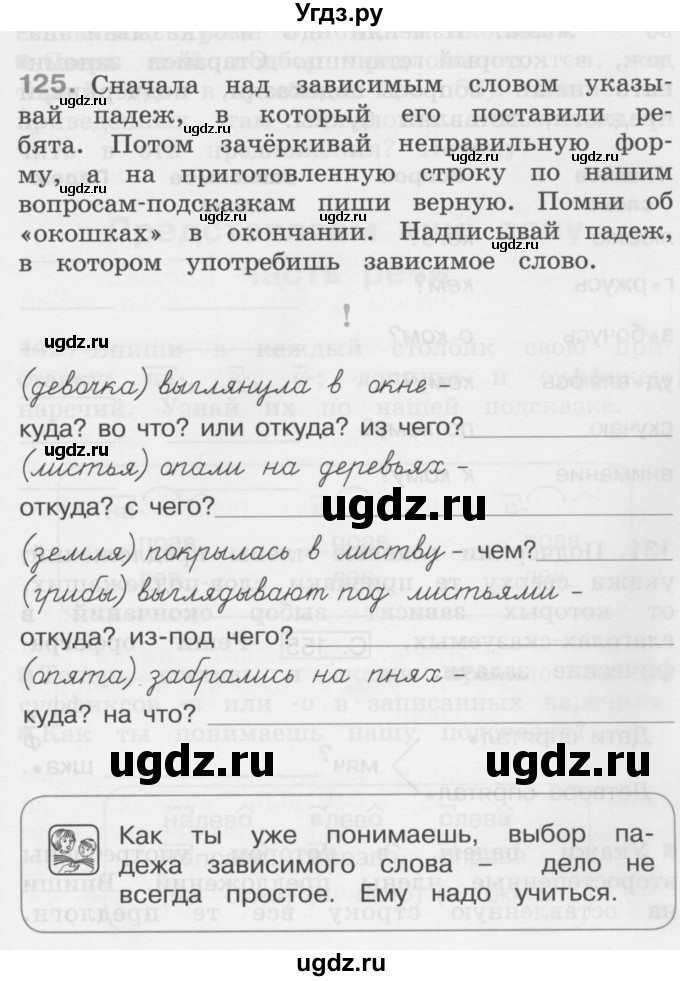 Угдз.ру
125. Сначала над зависимым словом указы-
вай падеж, в который его поставили ре-
бята. Потом зачёркивай неправильную фор-
му, а на приготовленную строку по нашим
вопросам-подсказкам пиши верную. Помни об
«окошках» в окончании. Надписывай падеж,
в котором употребишь зависимое слово.
!
(девочка) выглянула в окне –
куда? во что? или откуда? из чего?
(листья) опали на деревьях –
откуда? с чего?
(земля) покрылась в листву – чем?
(грибы) выглядывают под листьями –
откуда? из-под чего?
(опята) забрались на пнях –
куда? на что?
Как ты уже понимаешь, выбор па-
дежа зависимого слова – дело не
всегда простое. Ему надо учиться.
ugdz.ru
ugdz.ru
ugdz.ru
ugdz.ru
ugdz.ru
ugdz.ru
ugdz.ru
ugdz.ru
ugdz.ru
ugdz.ru
ugdz.ru
ugdz.ru
ugdz.ru